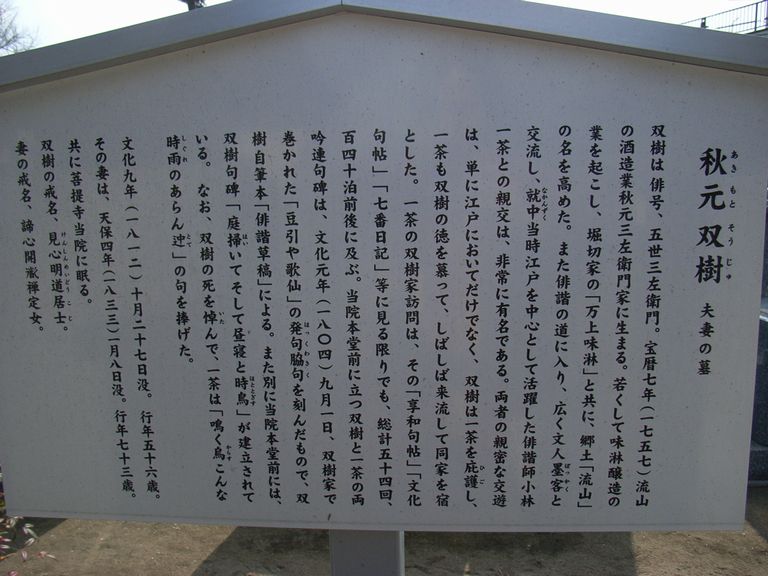 秋元双樹 夫妻の墓
あきもとそうじゅ
双樹は俳号、五世三左衛門。宝暦七年(一七五七)流山
の酒造業秋元三左衛門家に生まる。若くして味淋醸造の
業を起こし、堀切家の「万上味淋」と共に、郷土「流山」
の名を高めた。また俳諧の道に入り、広く文人墨客と
ぼっかく
交流し、就中当時江戸を中心として活躍した俳諧師小林
なかんずく
一茶との親交は、非常に有名である。両者の親密な交遊
は、単に江戸においてだけでなく、双樹は一茶を庇護し、
ひご
一茶も双樹の徳を慕って、しばしば来流して同家を宿
とした。一茶の双樹家訪問は、その「享和句帖」「文化
句帖」「七番日記」等に見る限りでも、総計五十四回、
百四十泊前後に及ぶ。当院本堂前に立つ双樹と一茶の両
吟連句碑は、文化元年(一八〇四)九月一日、双樹家で
巻かれた「豆引や歌仙」の発句脇句を刻んだもので、双
ほっくわきく
樹自筆本「俳諧草稿」による。また別に当院本堂前には、
双樹句碑「庭掃いてそして昼寝と時鳥」が建立されて
はい
ほととぎす
いる。なお、双樹の死を悼んで、一茶は「鳴く烏こんな
いた
からす
時雨のあらん迚」の句を捧げた。
しぐれ
とて
文化九年(一八一二)十月二十七日没。行年五十六歳。
その妻は、天保四年(一八三三)一月八日没。行年七十三歳。
共に菩提寺当院に眠る。
双樹の戒名、見心明道居士。
けんしんめいどうこじ
妻の戒名、諦心開禅定女。